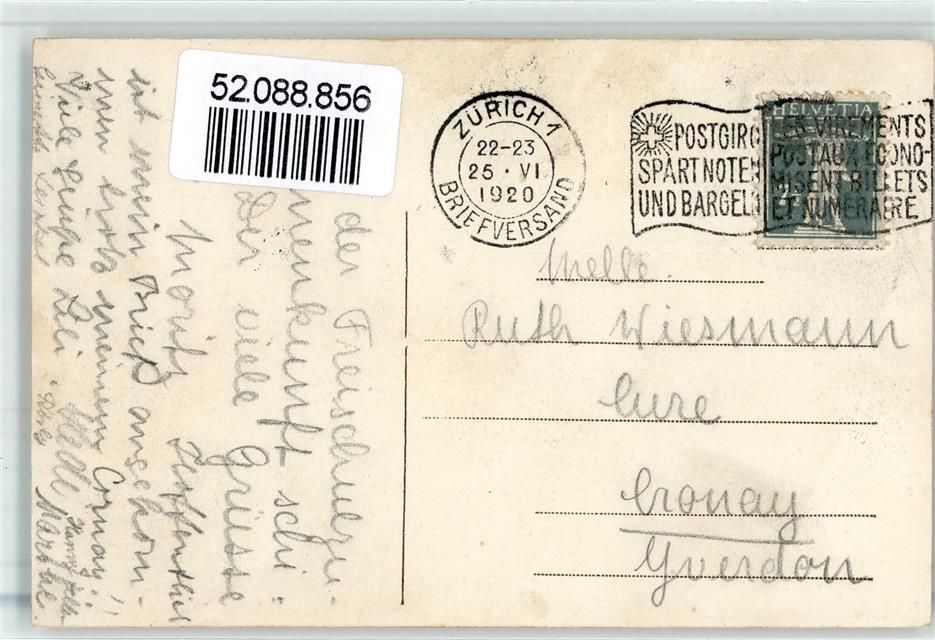 52.088.856
ZÜRICH 1
22-23
25 · VI
1920
BRIEFVERSAND
HELVETIA
POSTGIRO
SPART NOTEN
UND BARGELD
LES VIREMENTS
POSTAUX ECONO-
MISENT BILLETS
ET NUMERAIRE
Melle.
Ruth Wiesmann
Cure
Cronay
Yverdon
der Freischulzu-
menkunft schi-
Der viele Grüsse
Moritz
Hoffentlich
ist mein Brief angekom-
men trotz meinem Cornay!!
Viele Grüsse Lili